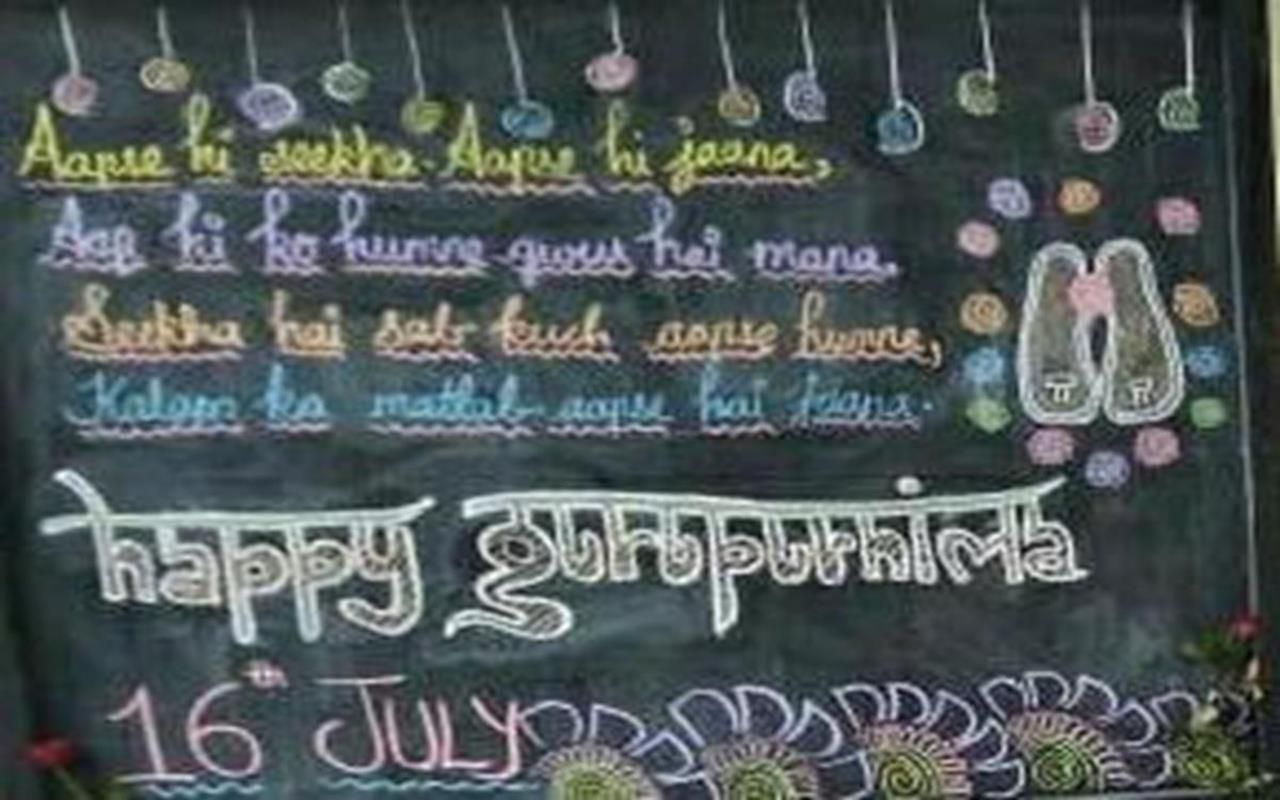 Aapse hi seekha. Aapse hi jaana,
Aap hi ko humne guru hai mana.
Seekha hai sab kuch aapse humne,
Kalam ka matlab aapse hai jaana.
happy gurupurnima
16th JULY